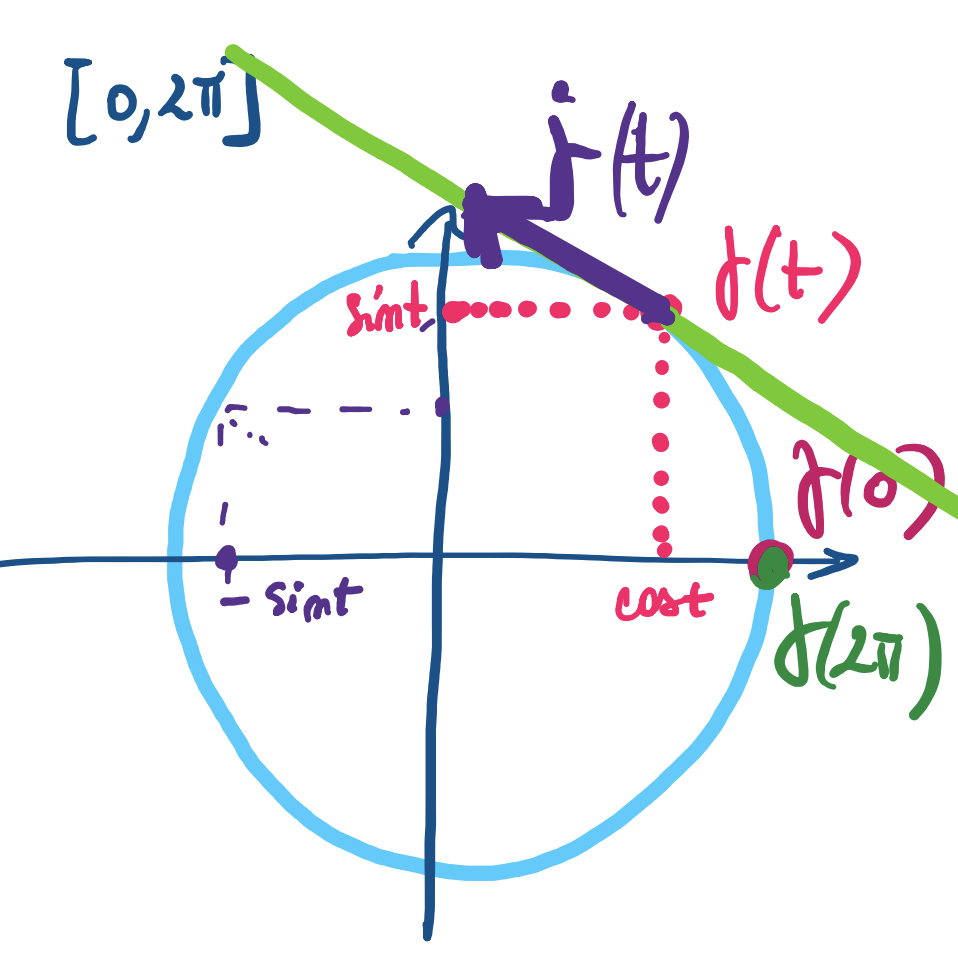 [0, 2π]
γ̇(t)
γ(t)
sin t
γ(0)
- sin t
cos t
γ(2π)